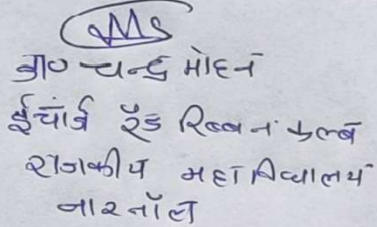 डा० चन्द्र मोहन
ईचार्ज रैड रिब्बन क्लब
राजकीय महाविद्यालय
नारनौल